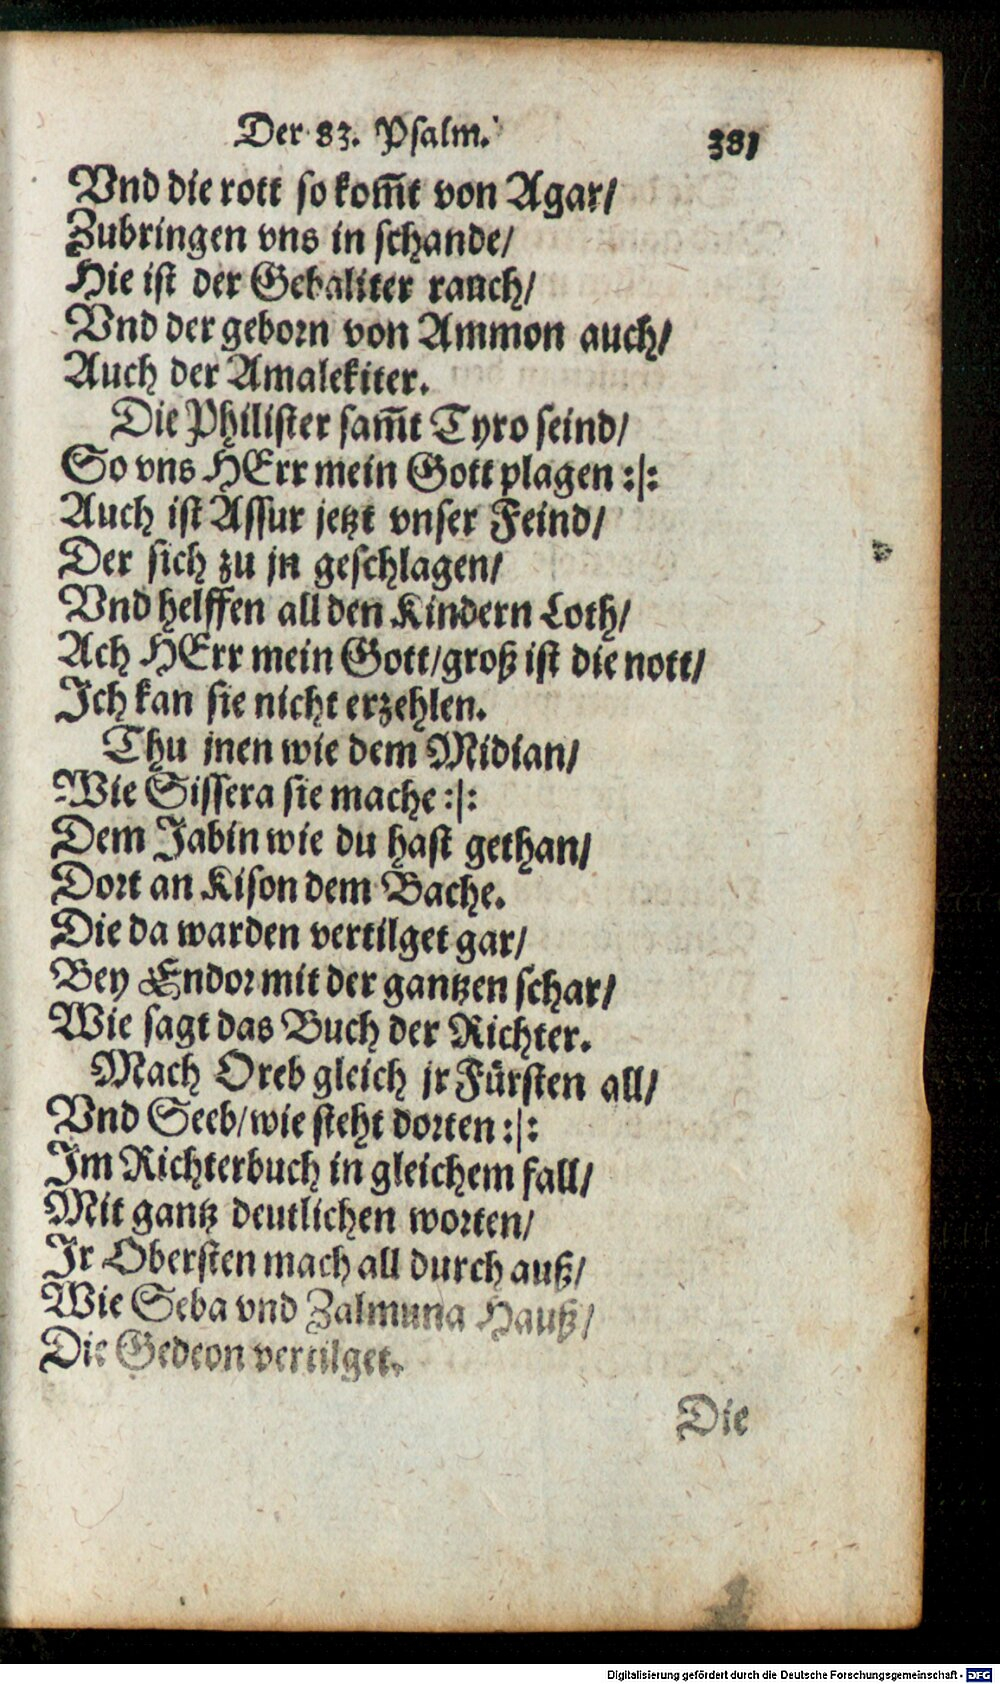 Der 83. Psalm. 381
Vnd die rott so kom̃t von Agar/
Zubringen vns in schande/
Hie ist der Gebaliter rauch/
Vnd der geborn von Ammon auch/
Auch der Amalekiter.
Die Philister sam̃t Tyro seind/
So vns HErr mein Gott plagen :|:
Auch ist Assur jetzt vnser Feind/
Der sich zu jn geschlagen/
Vnd helffen all den Kindern Loth/
Ach HErr mein Gott/groß ist die nott/
Ich kan sie nicht erzehlen.
Thu jnen wie dem Midian/
Wie Sissera sie mache :|:
Dem Jabin wie du hast gethan/
Dort an Kison dem Bache.
Die da warden vertilget gar/
Bey Endor mit der gantzen schar/
Wie sagt das Buch der Richter.
Mach Oreb gleich jr Fürsten all/
Vnd Seeb/wie steht dorten :|:
Im Richterbuch in gleichem fall/
Mit gantz deutlichen worten/
Ir Obersten mach all durch auß/
Wie Seba vnd Zalmuna Hauß/
Die Gedeon vertilget.
Die
Digitalisierung gefördert durch die Deutsche Forschungsgemeinschaft - DFG